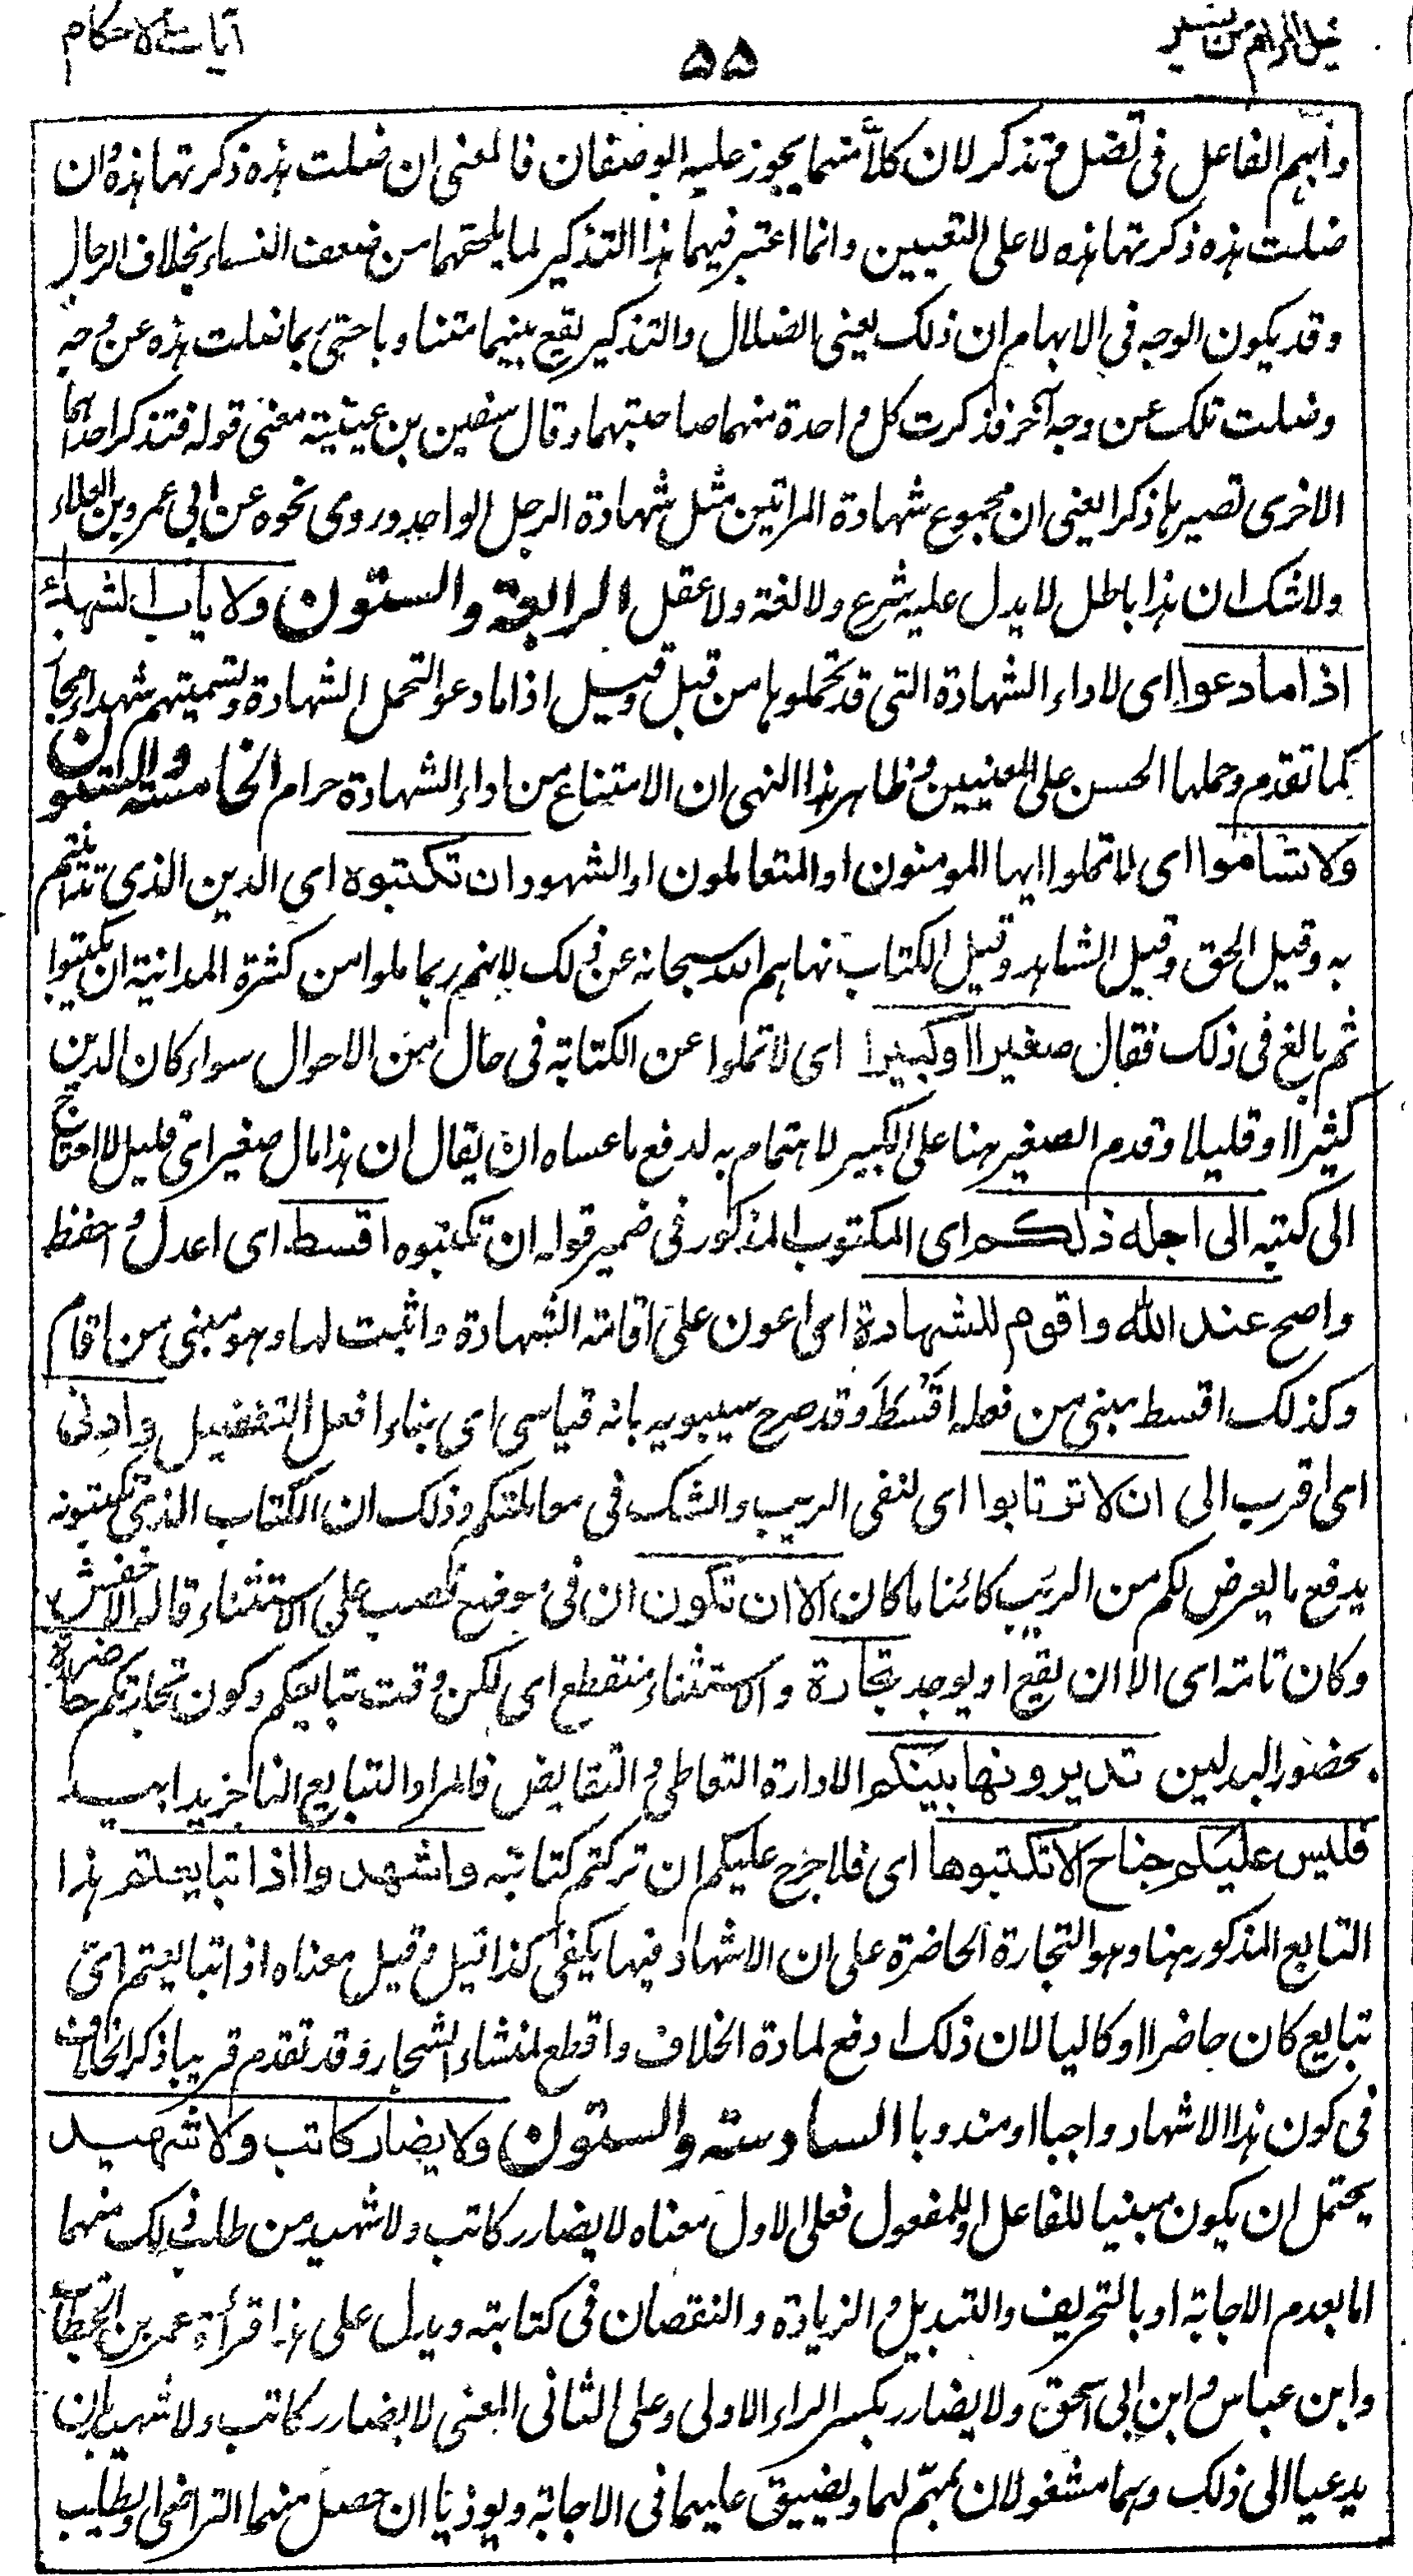 نيل المرام من تفسير
۵۵
آيات الاحكام
وأبهم الفاعل فى تضل وتذكر لان كلاًّ منهما يجوز عليه الوصفان فالمعنى ان ضلت هذه ذكرتها هذه وان
ضلت هذه ذكرتها هذه لا على التعيين وانما اعتبر فيهما هذا التذكير لما يلحقهما من ضعف النساء بخلاف الرجال
وقد يكون الوجه فى الابهام ان ذلك يعنى الضلال والتذكير يقع بينهما متناوبا حتى ربما ضلت هذه عن وجه
وضلت تلك عن وجه آخر فذكرت كل واحدة منهما صاحبتها وقال سفين بن عيينة معنى قوله فتذكر احداهما
الاخرى تصيرها ذكرا يعنى ان مجموع شهادة المرأتين مثل شهادة الرجل الواحد وروى نحوه عن ابى عمرو بن العلاء
ولا شك ان هذا باطل لا يدل عليه شرع ولا لغة ولا عقل الرابعة والستون ولا يأب الشهداء
اذا ما دعوا اى لاداء الشهادة التى قد تحملوها من قبل وقيل اذا ما دعوا لتحمل الشهادة وتسميتهم شهداء مجاز
كما تقدم وحملها الحسن على المعنيين وظاهر هذا النهى ان الامتناع من اداء الشهادة حرام الخامسة والستون
ولا تسأموا اى لا تملوا ايها المومنون او المتعاملون او الشهود ان تكتبوه اى الدين الذى تداينتم
به وقيل الحق وقيل الشاهد وقيل الكتاب نهاهم الله سبحانه عن ذلك لانهم ربما ملوا من كثرة المداينة ان يكتبوا
ثم بالغ فى ذلك فقال صغيرا او كبيرا اى لا تملوا عن الكتابة فى حال من الاحوال سواء كان الدين
كثيرا او قليلا وقدم الصغير هنا على الكبير لاهتمام به لدفع ما عساه ان يقال ان هذا مال صغير اى قليل لا احتاج
الى كتبه الى اجله ذلكم اى المكتوب المذكور فى ضمير قوله ان تكتبوه اقسط اى اعدل واحفظ
واصح عند الله واقوم للشهادة اى اعون على اقامة الشهادة واثبت لها وهو مبنى من اقام
وكذلك اقسط مبنى من فعله اقسط وقد صرح سيبويه بانه قياسى اى بناء افعل التفضيل وادنى
اى اقرب الى ان لا ترتابوا اى لنفى الريب والشك فى معاملتكم وذلك ان الكتاب الذى تكتبونه
يدفع ما يعرض لكم من الريب كائنا ما كان الا ان تكون ان فى موضع نصب على الاستثناء قاله الاخفش
وكان تامة اى الا ان يقع او يوجد تجارة والاستثناء منقطع اى لكن وقت تبايعكم وكون تجارتكم حاضرة
بحضور البدلين تديرونها بينكم الادارة التعاطى والتقابض فالمراد التبايع الناجز يدا بيد
فليس عليكم جناح الا تكتبوها اى فلا حرج عليكم ان تركتم كتابته واشهدوا اذا تبايعتم هذا
التبايع المذكور هنا وهو التجارة الحاضرة على ان الاشهاد فيها يكفى كذا قيل وقيل معناه اذا تبايعتم اى
تبايع كان حاضرا او كاليا لان ذلك ادفع لمادة الخلاف واقطع لمنشاء الشجار وقد تقدم قريبا ذكر الخلاف
فى كون هذا الاشهاد واجبا او مندوبا السادسة والستون ولا يضار كاتب ولا شهيد
يحتمل ان يكون مبنيا للفاعل او للمفعول فعلى الاول معناه لا يضارر كاتب ولا شهيد من طلب ذلك منهما
اما بعدم الاجابة او بالتحريف والتبديل والزيادة والنقصان فى كتابته ويدل على هذا قرأة عمر بن الخطاب
وابن عباس وابن ابى اسحق ولا يضارر بكسر الراء الاولى وعلى الثانى المعنى لا يضارر كاتب ولا شهيد بان
يدعيا الى ذلك وهما مشغولان بمهم لهما ويضيق عليهما فى الاجابة ويوذيا ان حصل منهما التراخى او يطلب